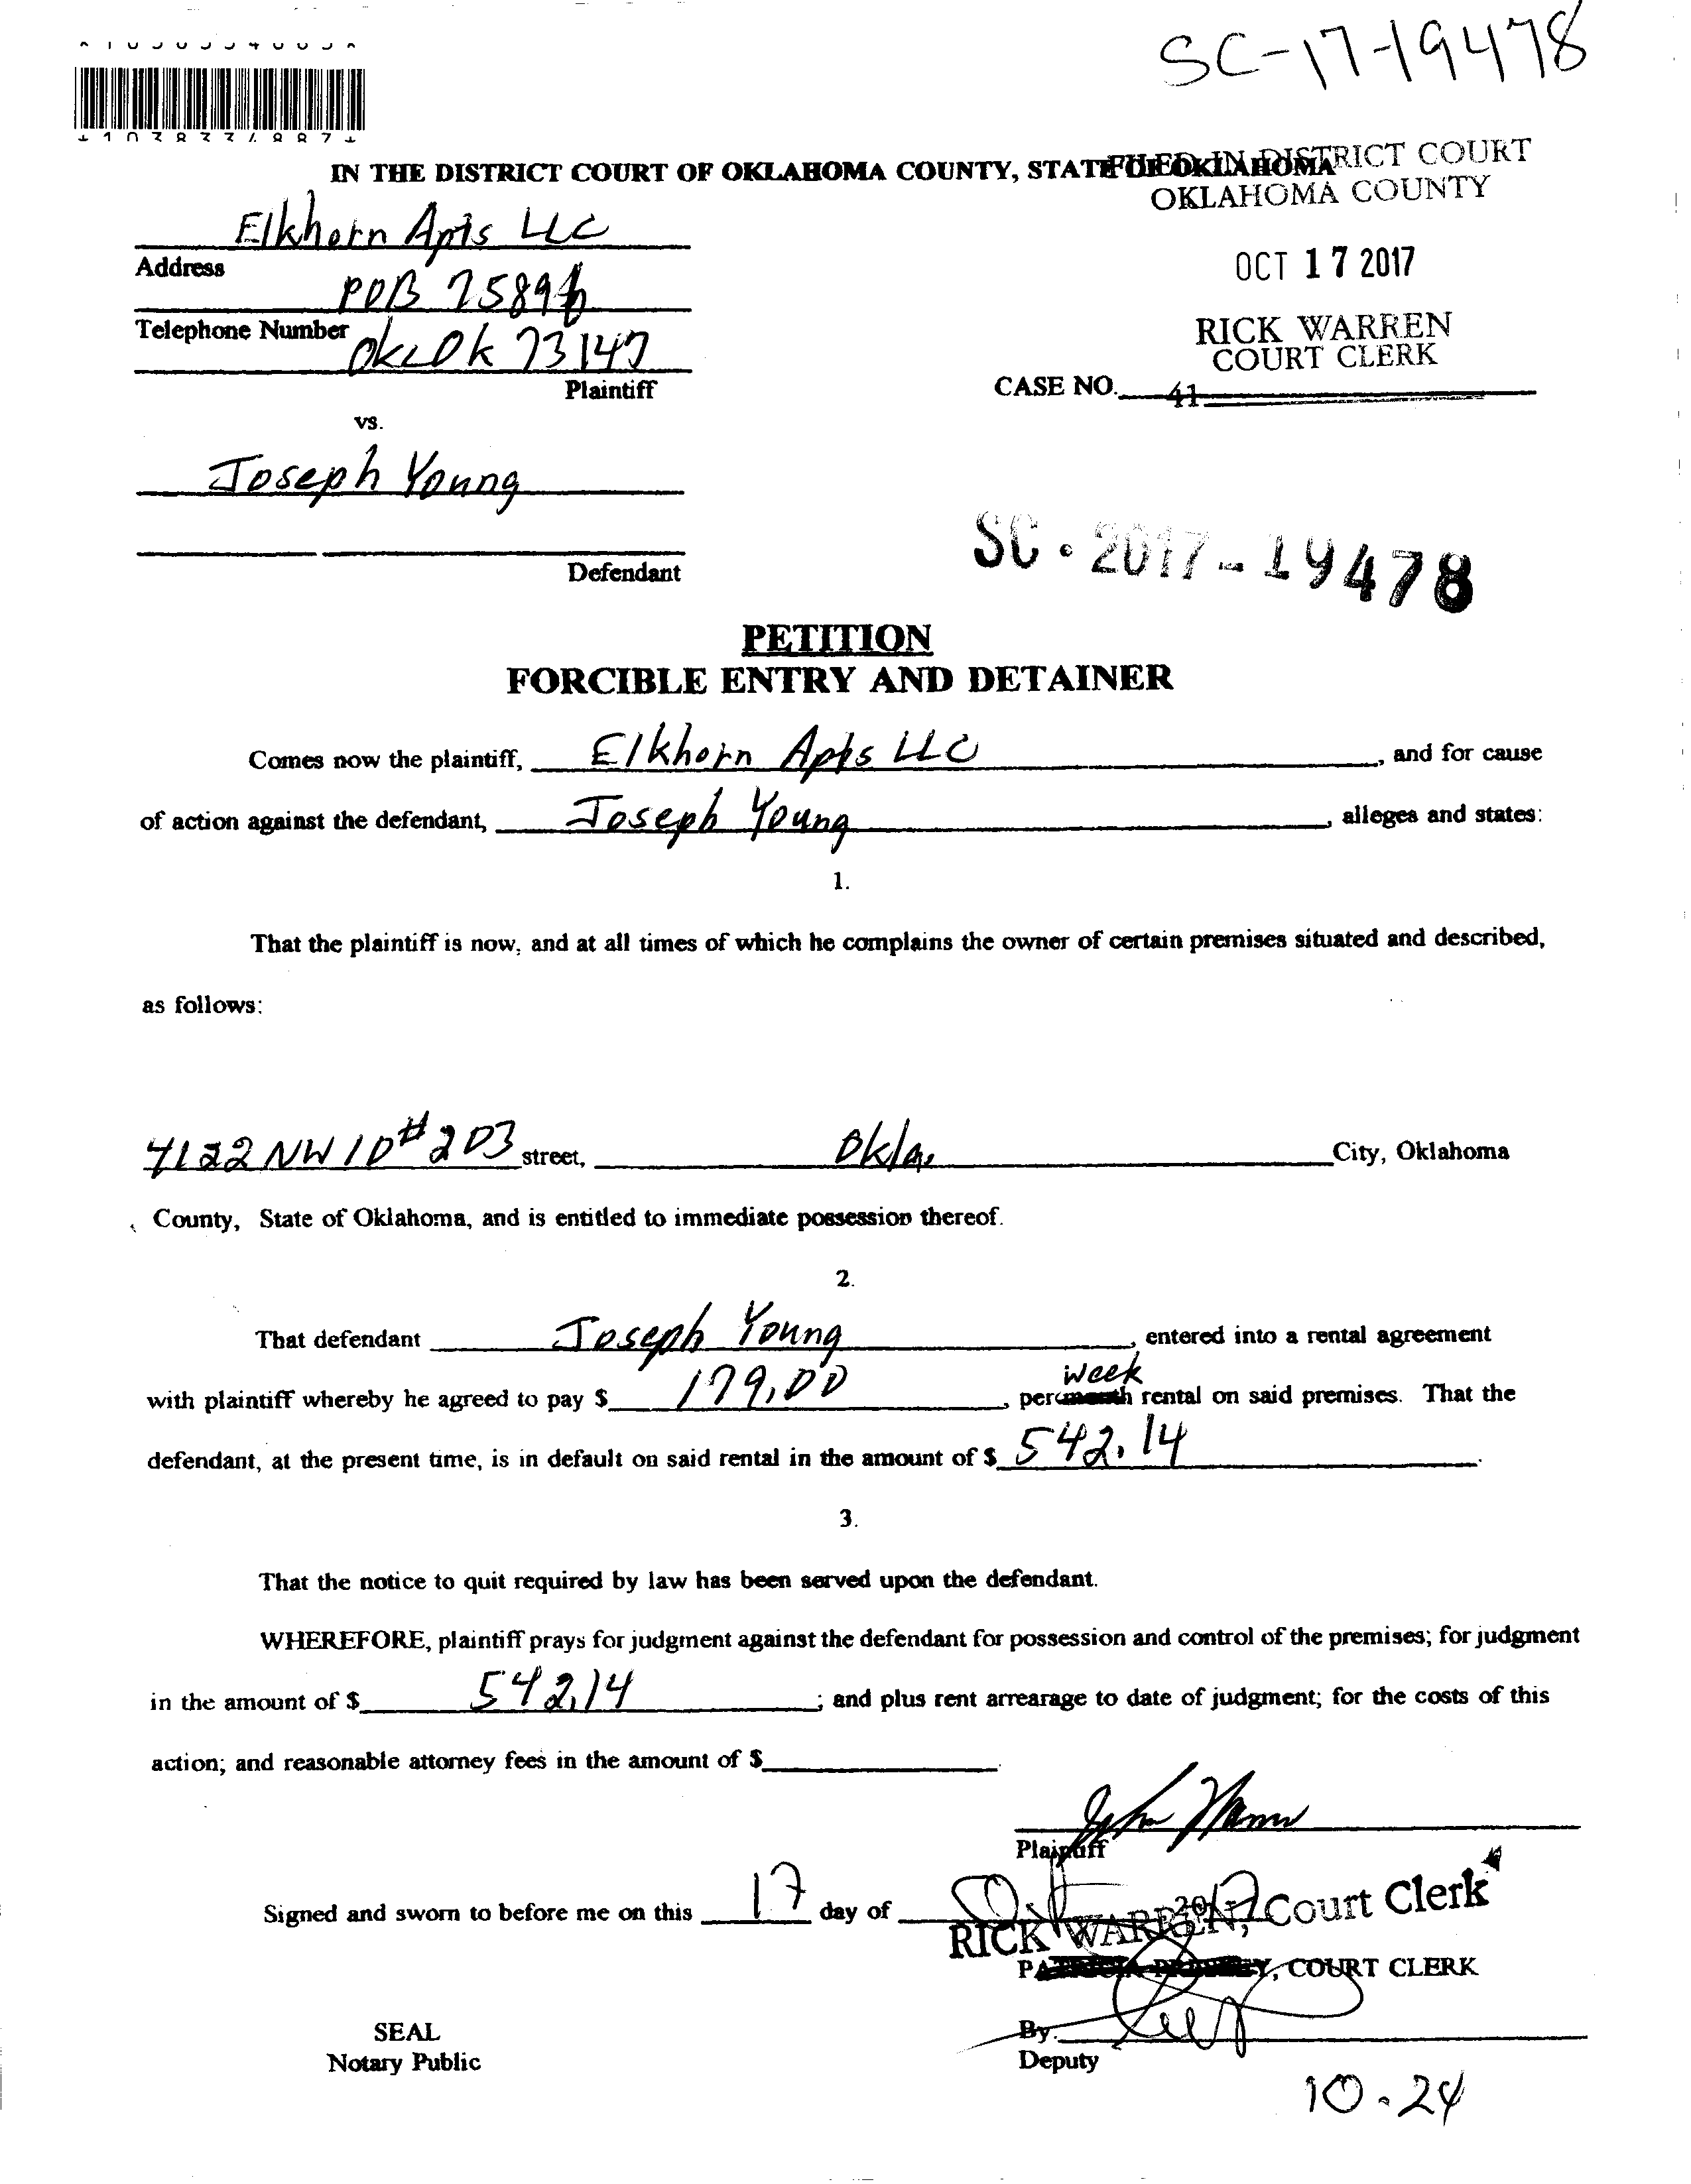 SC-17-19478
IN THE DISTRICT COURT OF OKLAHOMA COUNTY, STATE OF OKLAHOMA
FILED IN DISTRICT COURT
OKLAHOMA COUNTY
Elkhorn Apts LLC
Address
OCT 17 2017
POB 75896
Telephone Number
RICK WARREN
COURT CLERK
OKC OK 73147
Plaintiff
CASE NO. 41
vs.
Joseph Young
SC-2017-19478
Defendant
PETITION
FORCIBLE ENTRY AND DETAINER
Comes now the plaintiff, Elkhorn Apts LLC, and for cause
of action against the defendant, Joseph Young, alleges and states:
1.
That the plaintiff is now, and at all times of which he complains the owner of certain premises situated and described,
as follows:
4122 NW 10 #203 street, Okla. City, Oklahoma
County, State of Oklahoma, and is entitled to immediate possession thereof.
2.
That defendant Joseph Young, entered into a rental agreement
week
with plaintiff whereby he agreed to pay $ 179.00, per month rental on said premises. That the
defendant, at the present time, is in default on said rental in the amount of $ 542.14.
3.
That the notice to quit required by law has been served upon the defendant.
WHEREFORE, plaintiff prays for judgment against the defendant for possession and control of the premises; for judgment
in the amount of $ 542.14; and plus rent arrearage to date of judgment; for the costs of this
action; and reasonable attorney fees in the amount of $
Plaintiff
Signed and sworn to before me on this 17 day of Oct 2017
RICK WARREN, Court Clerk
COURT CLERK
SEAL
By
Notary Public
Deputy
10-24